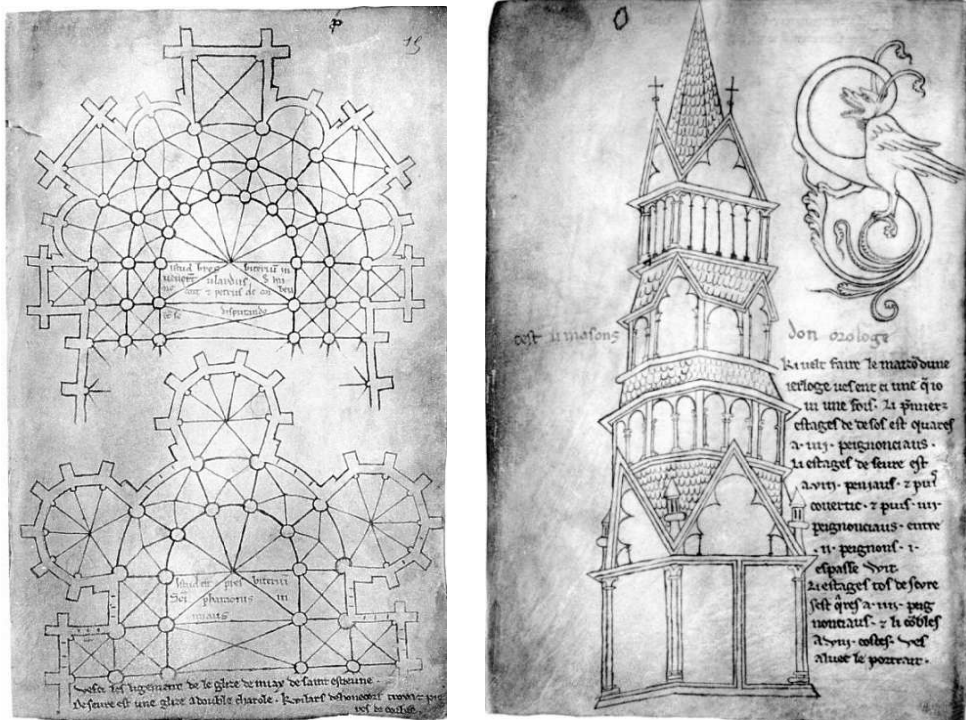 15
istud bresbiteriū in
ulardus
& petrus de
disputando
Istud est presbiteriū
Sci pharaonis in
miaus
Vesci les ligement de le glize de miax de saint estienne.
Deseure est une glize a double charole. K vilars dehonecort trova
de corbie.
cest li masons don orologe
Ki velt faire le maizō dune
ierloge ves ent ci une q̄ io
vi une fois. Li p̄miers
estages de desos est quares
a .iiii. peignonciaus.
Li estages de seure est
a .viii. peniaus. & puis
covertic. & puis .iiii.
peignonciaus. entre
.ii. peignons .i.
espasse wit.
Li estages tos de seure
sest q̄res a .iiii. peig
nonciaus. & li cōbles
a .viii. costes. ves
aluec le portrait.